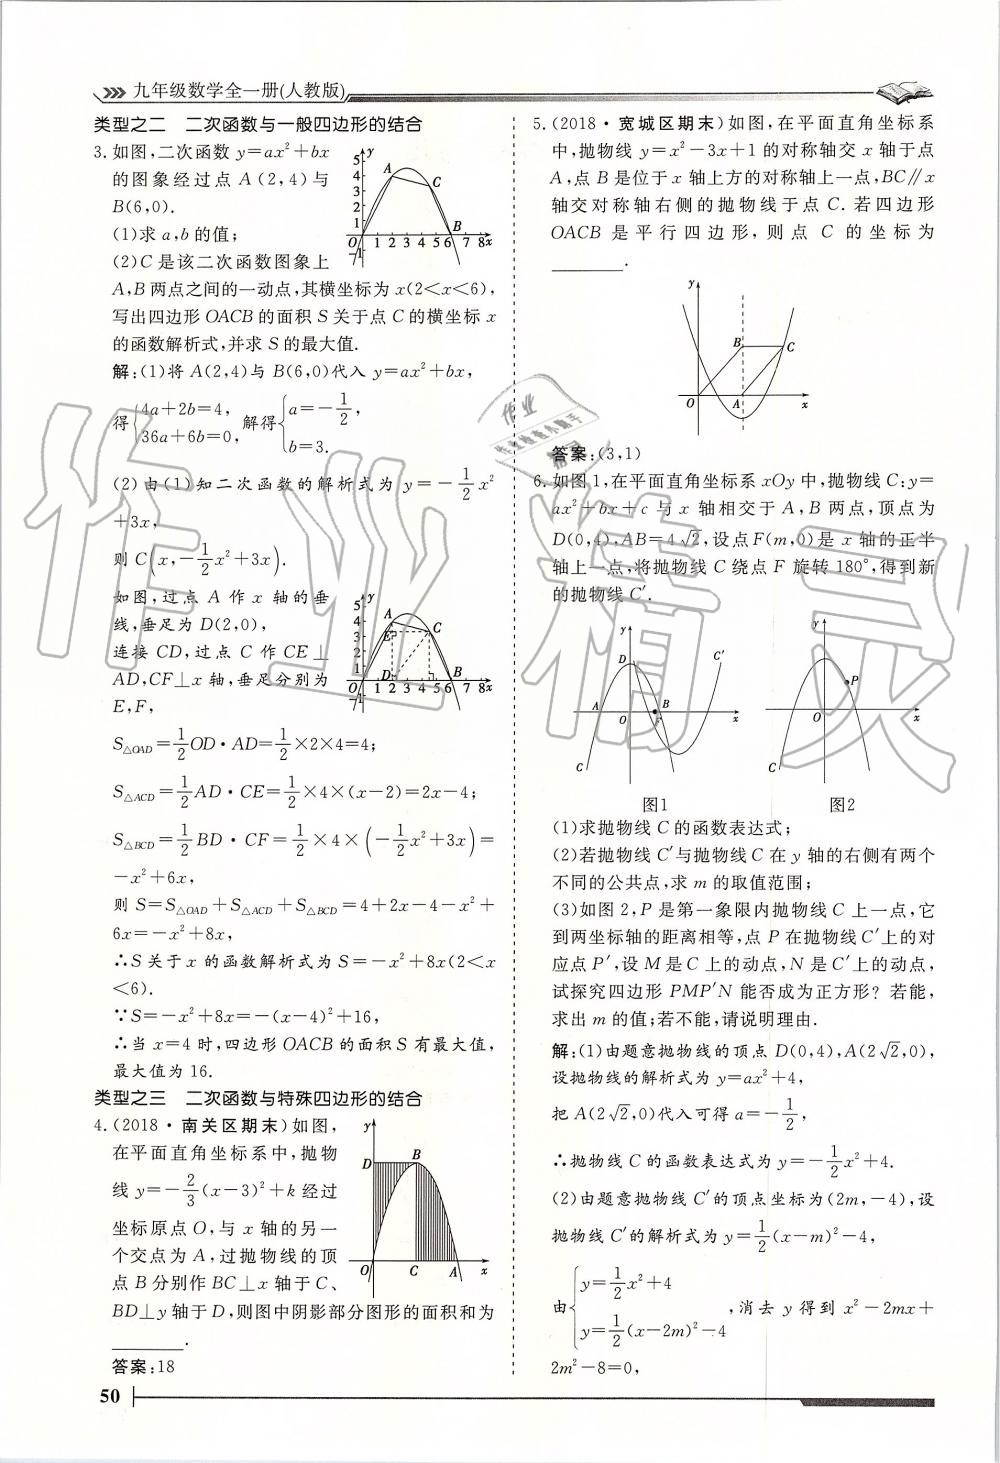 九年级数学全一册(人教版)
类型之二 二次函数与一般四边形的结合
3.如图,二次函数 y=ax²+bx
的图象经过点 A(2,4)与
B(6,0).
(1)求 a,b 的值;
(2)C 是该二次函数图象上
A,B 两点之间的一动点,其横坐标为 x(2<x<6),
写出四边形 OACB 的面积 S 关于点 C 的横坐标 x
的函数解析式,并求 S 的最大值.
解:(1)将 A(2,4)与 B(6,0)代入 y=ax²+bx,
得{4a+2b=4, 36a+6b=0, 解得{a=-1/2, b=3.
(2)由(1)知二次函数的解析式为 y=-1/2x²
+3x,
则 C(x,-1/2x²+3x).
如图,过点 A 作 x 轴的垂
线,垂足为 D(2,0),
连接 CD,过点 C 作 CE⊥
AD,CF⊥x 轴,垂足分别为
E,F,
S△OAD=1/2OD·AD=1/2×2×4=4;
S△ACD=1/2AD·CE=1/2×4×(x-2)=2x-4;
S△BCD=1/2BD·CF=1/2×4×(-1/2x²+3x)=
-x²+6x,
则 S=S△OAD+S△ACD+S△BCD=4+2x-4-x²+
6x=-x²+8x,
∴S 关于 x 的函数解析式为 S=-x²+8x(2<x
<6).
∵S=-x²+8x=-(x-4)²+16,
∴当 x=4 时,四边形 OACB 的面积 S 有最大值,
最大值为 16.
类型之三 二次函数与特殊四边形的结合
4.(2018·南关区期末)如图,
在平面直角坐标系中,抛物
线 y=-2/3(x-3)²+k 经过
坐标原点 O,与 x 轴的另一
个交点为 A,过抛物线的顶
点 B 分别作 BC⊥x 轴于 C、
BD⊥y 轴于 D,则图中阴影部分图形的面积和为
________.
答案:18
50
5.(2018·宽城区期末)如图,在平面直角坐标系
中,抛物线 y=x²-3x+1 的对称轴交 x 轴于点
A,点 B 是位于 x 轴上方的对称轴上一点,BC∥x
轴交对称轴右侧的抛物线于点 C.若四边形
OACB 是平行四边形,则点 C 的坐标为
________.
答案:(3,1)
6.如图 1,在平面直角坐标系 xOy 中,抛物线 C:y=
ax²+bx+c 与 x 轴相交于 A,B 两点,顶点为
D(0,4),AB=4√2,设点 F(m,0)是 x 轴的正半
轴上一点,将抛物线 C 绕点 F 旋转 180°,得到新
的抛物线 C′.
图1 图2
(1)求抛物线 C 的函数表达式;
(2)若抛物线 C′与抛物线 C 在 y 轴的右侧有两个
不同的公共点,求 m 的取值范围;
(3)如图 2,P 是第一象限内抛物线 C 上一点,它
到两坐标轴的距离相等,点 P 在抛物线 C′上的对
应点 P′,设 M 是 C 上的动点,N 是 C′上的动点,
试探究四边形 PMP′N 能否成为正方形?若能,
求出 m 的值;若不能,请说明理由.
解:(1)由题意抛物线的顶点 D(0,4),A(2√2,0),
设抛物线的解析式为 y=ax²+4,
把 A(2√2,0)代入可得 a=-1/2,
∴抛物线 C 的函数表达式为 y=-1/2x²+4.
(2)由题意抛物线 C′的顶点坐标为(2m,-4),设
抛物线 C′的解析式为 y=1/2(x-m)²-4,
由{y=1/2x²+4 y=1/2(x-2m)²-4,消去 y 得到 x²-2mx+
2m²-8=0,
作业精灵